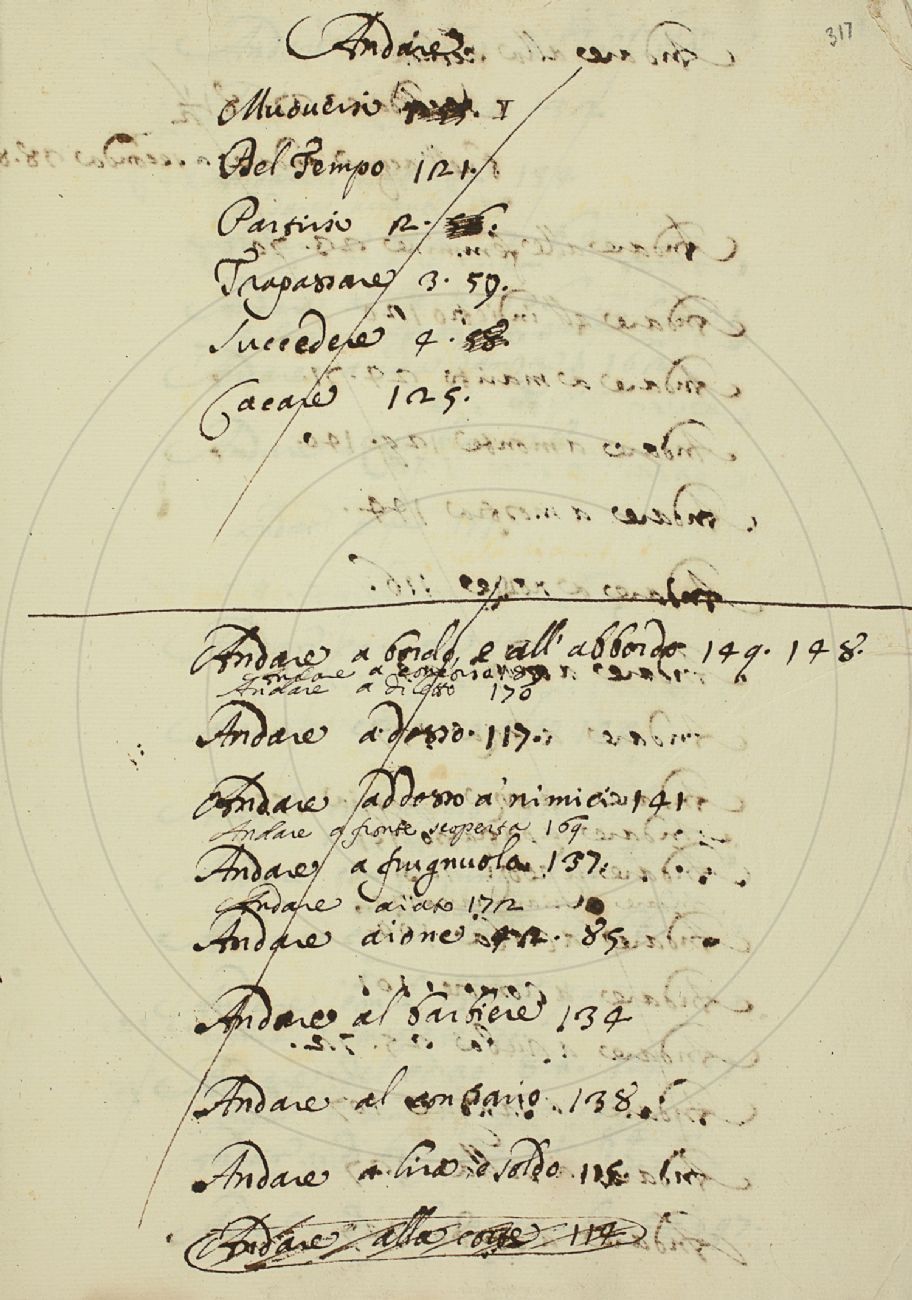 317
Andare
Muoversi I
Del Tempo 121.
Partirsi 2.
Trapassare 3. 59.
Succedere 4. 58
Cacare 125.
Andare a bordo, e all' abbordo 149. 148.
Andare a
Andare a diletto 170
Andare adosso. 117.
Andare addosso a' nimici 141
Andare a fronte scoperta 169
Andare a frugnuolo 137.
Andare aiato 172
Andare aione 42. 85
Andare al barbiere 134
Andare al contrario 138.
Andare a lira e soldo 115.
Andare alla corte 114